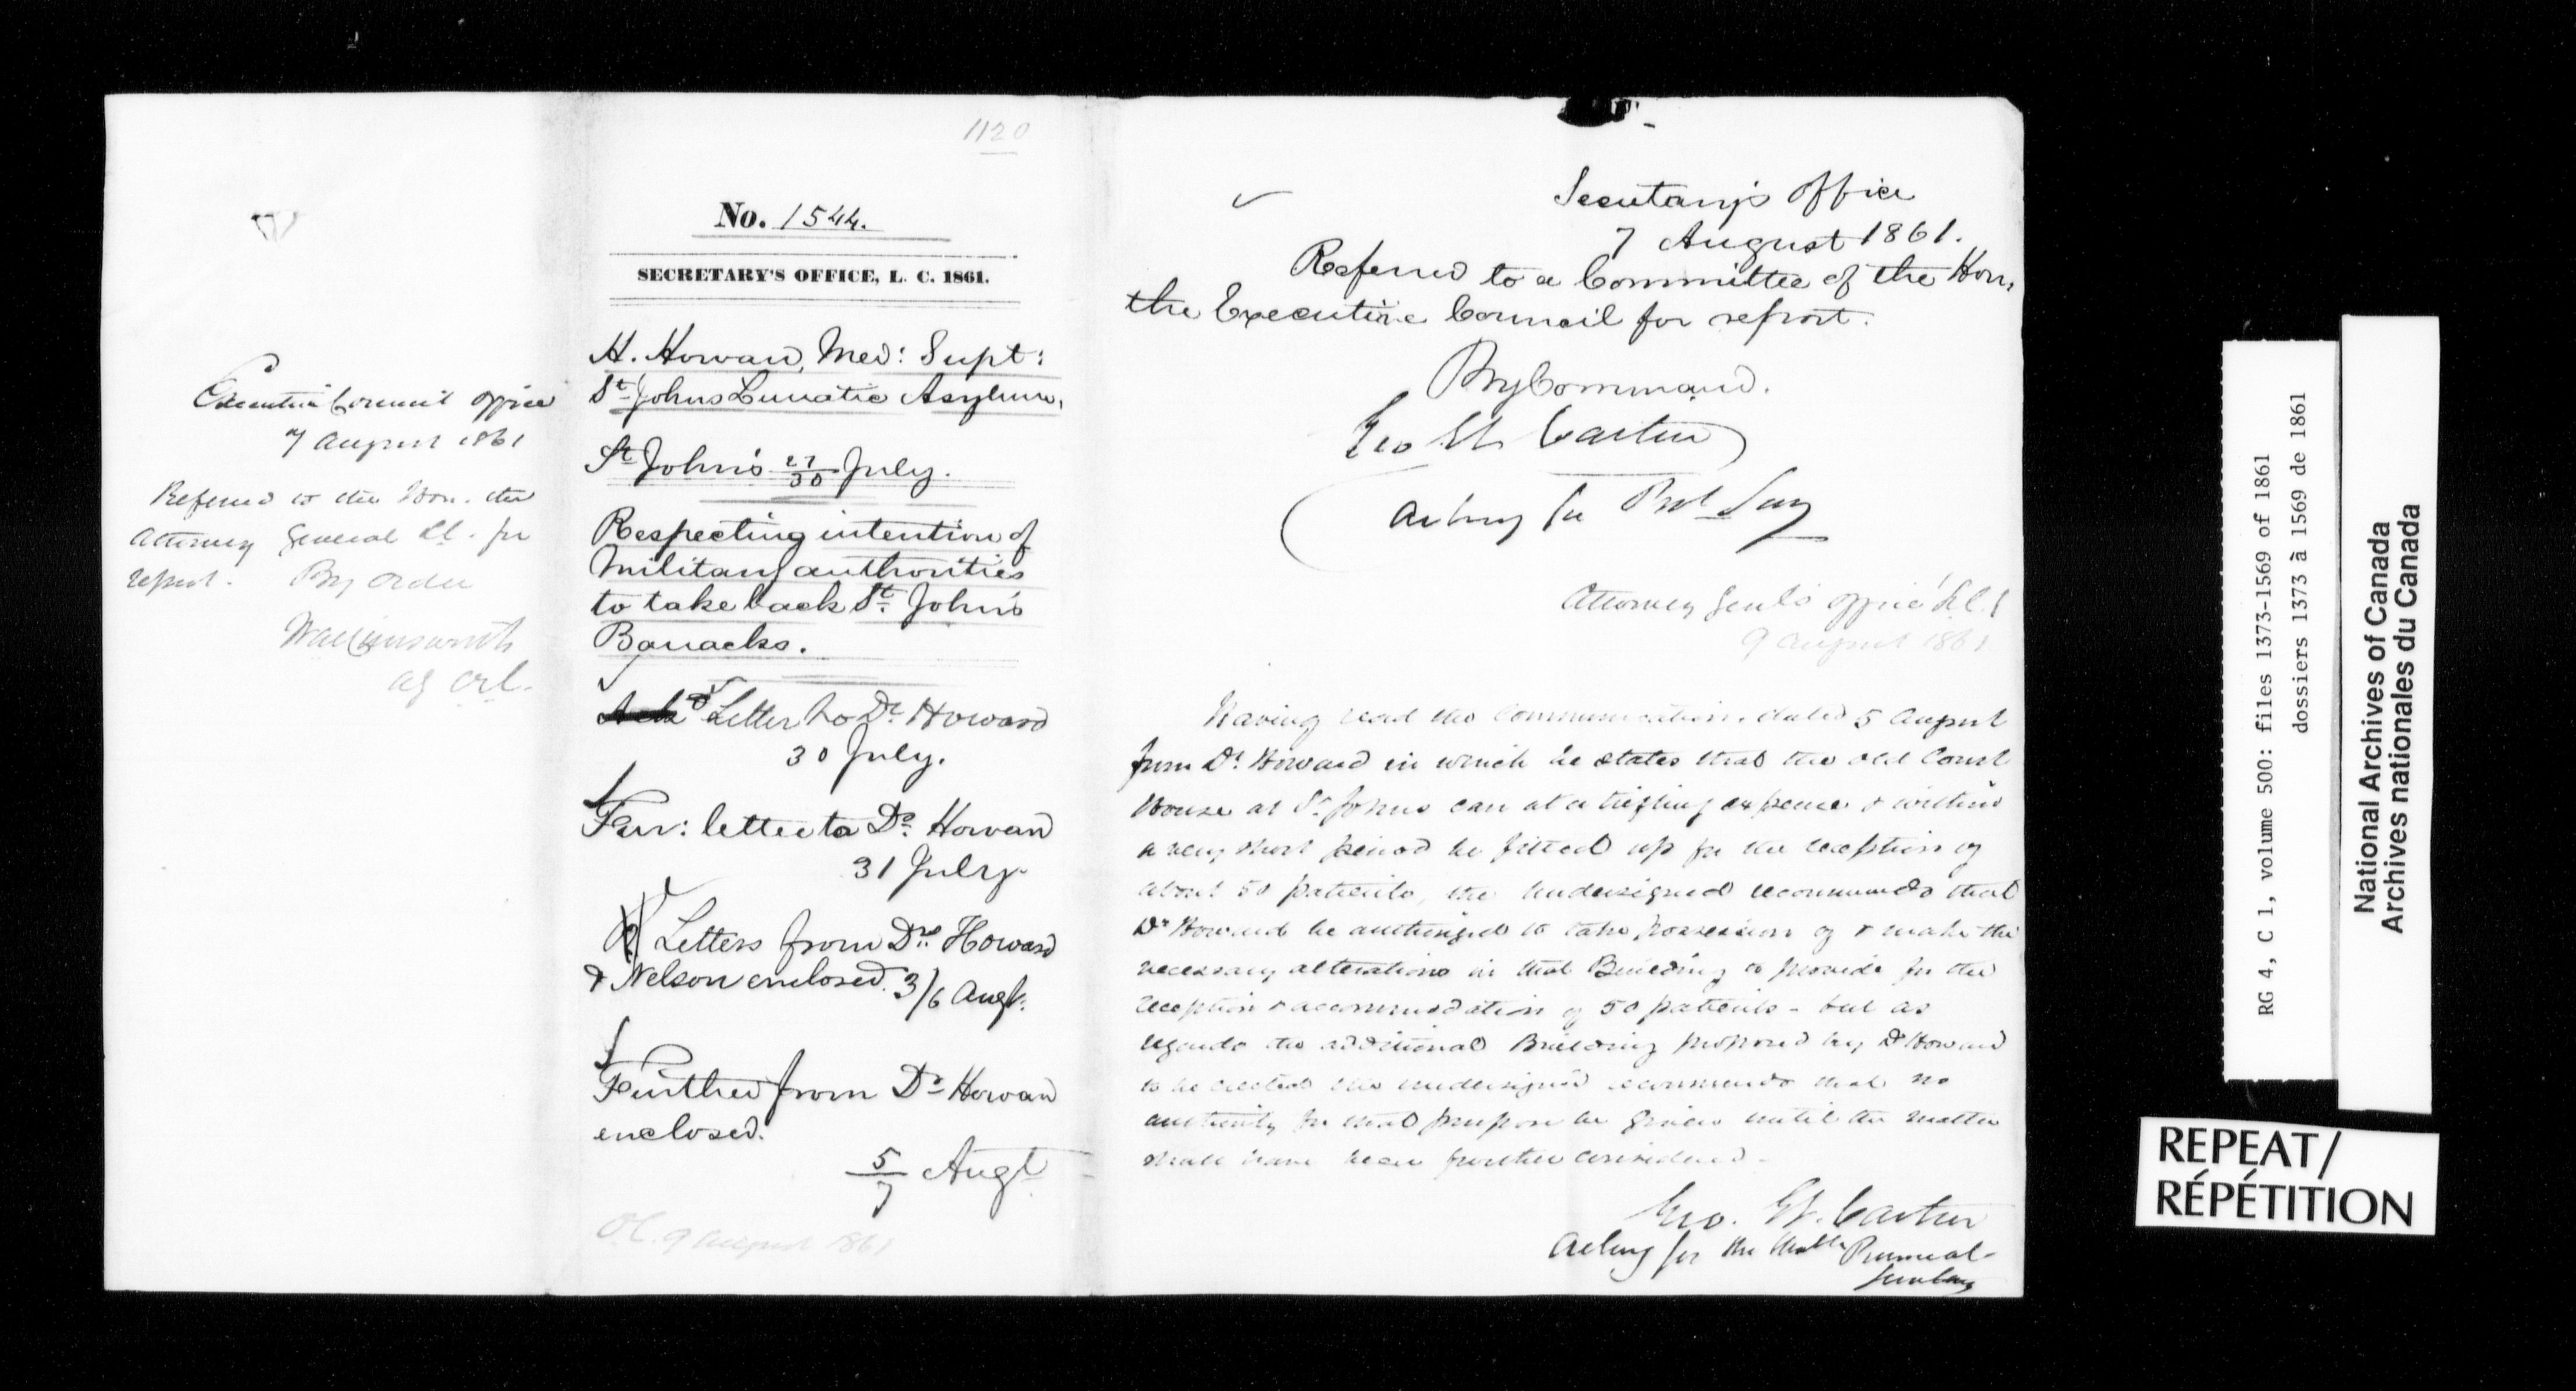 Executive Council Office
7 August 1861
Referred to the Hon. the
Attorney General L.C. for
report. By Order
Ag C.E.C.
1120
No. 1544.
SECRETARY'S OFFICE, L. C. 1861.
H. Howard, Med: Supt:
St Johns Lunatic Asylum,
St John's 27/30 July.
Respecting intention of
Military authorities
to take back St John's
Barracks.
Ackd Letter to Dr Howard
30 July.
Fur: letter to Dr Howard
31 July
Letters from Drs Howard
& Nelson enclosed. 3/6 Augt.
Further from Dr Howard
enclosed.
5/7 Augt
O.C. 9 August 1861
Secretary's Office
7 August 1861.
Referred to a Committee of the Hon.
the Executive Council for report.
By Command.
Geo Et Cartier
Acting for Prol Secy
Attorney Genl's Office L.C.
9 August 1861
Having read the communication dated 5 August
from Dr Howard in which he states that the old Court
House at St Johns can at a trifling expense & within
a very short period be fitted up for the reception of
about 50 patients, the undersigned recommends that
Dr Howard be authorized to take possession of & make the
necessary alterations in that Building to provide for the
reception & accommodation of 50 patients - but as
regards the additional Building proposed by Dr Howard
to be erected the undersigned recommends that no
authority for that purpose be given until the matter
shall have been further considered -
Geo. Et. Cartier
Acting for the Honble Provincial
Secretary
RG 4, C 1, volume 500: files 1373-1569 of 1861
dossiers 1373 à 1569 de 1861
National Archives of Canada
Archives nationales du Canada
REPEAT/
RÉPÉTITION